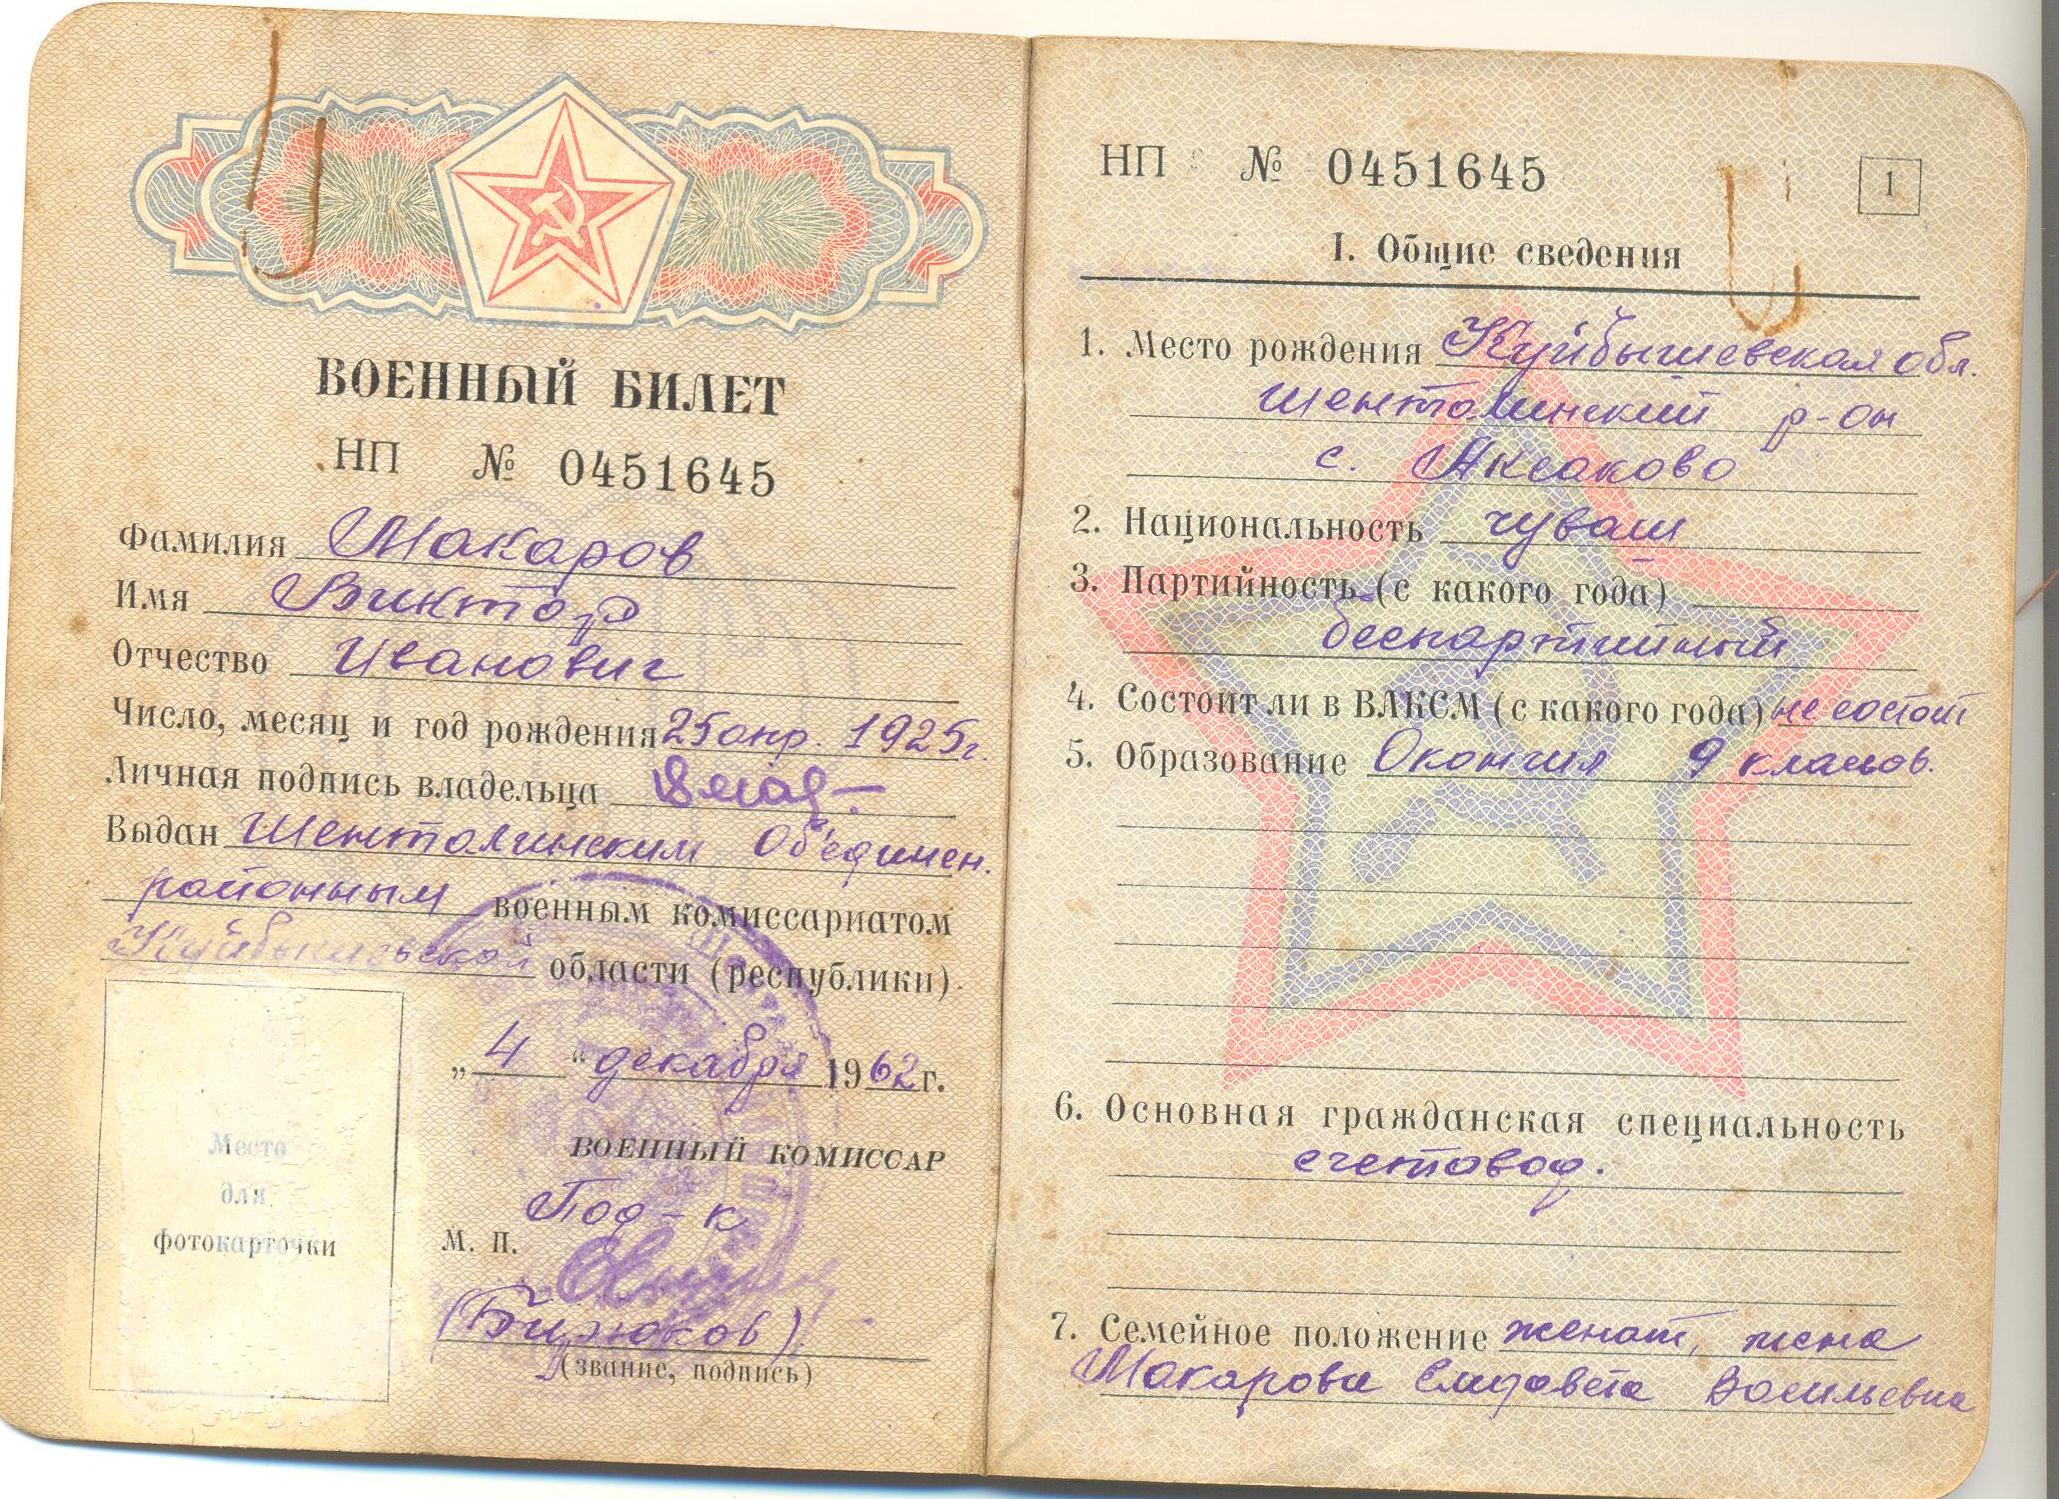 ВОЕННЫЙ БИЛЕТ
НП № 0451645
Фамилия Макаров
Имя Виктор
Отчество Иванович
Число, месяц и год рождения 25 апр. 1925г.
Личная подпись владельца
Выдан Шенталинским Об'единен.
районным военным комиссариатом
Куйбышевской области (республики).
„4“ декабря 1962г.
ВОЕННЫЙ КОМИССАР
Под-к
М. П.
(Бирюков)
(звание, подпись)
Место
для
фотокарточки
НП № 0451645
1
I. Общие сведения
1. Место рождения Куйбышевская обл.
Шенталинский р-он
с. Аксаково
2. Национальность чуваш
3. Партийность (с какого года)
беспартийный
4. Состоит ли в ВЛКСМ (с какого года) не состоит
5. Образование Окончил 9 классов.
6. Основная гражданская специальность
счетовод.
7. Семейное положение женат, жена
Макарова Елизавета Васильевна